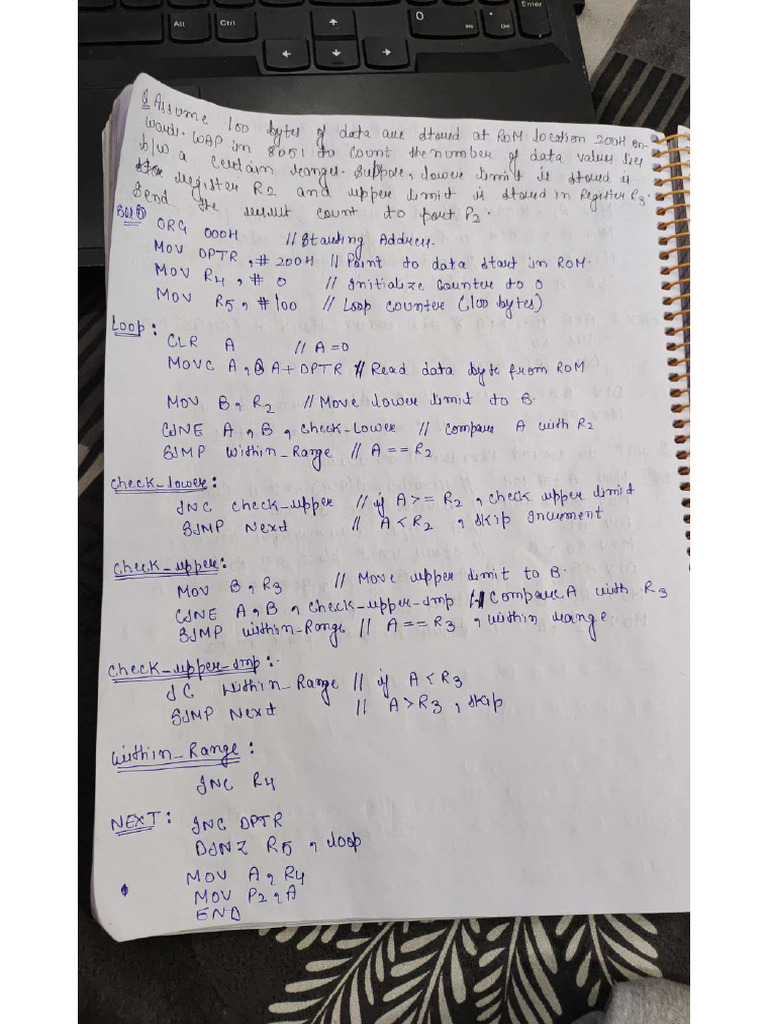 Enter
Alt
Ctrl
↑
0
Ins
Del
←
↓
→
Q Assume 100 bytes of data are stored at ROM location 200H on-
wards. WAP in 8051 to count the number of data values lies
b/w a certain range. Suppose, lower limit is stored is
register R2 and upper limit is stored in Register R3.
Send the result count to port P2.
Sol ORG 000H // Starting Address.
MOV DPTR, #200H // Point to data start in ROM.
MOV R4, #0 // Initialize counter to 0
MOV R5, #100 // Loop counter (100 bytes)
Loop:
CLR A // A=0
MOVC A, @A+DPTR // Read data byte from ROM
MOV B, R2 // Move lower limit to B.
CJNE A, B, Check-Lower // compare A with R2
SJMP Within_Range // A == R2
Check_lower:
JNC check-upper // if A>= R2, check upper limit
SJMP Next // A < R2, skip Increment
Check_upper:
MOV B, R3 // Move upper limit to B.
CJNE A, B, check-upper-Jmp // Compare A with R3
SJMP within-Range // A == R3, within range.
Check_upper_Jmp:
JC Within_Range // if A < R3
SJMP Next // A > R3, skip
Within_Range:
INC R4
NEXT: INC DPTR
DJNZ R5, loop
MOV A, R4
MOV P2, A
END